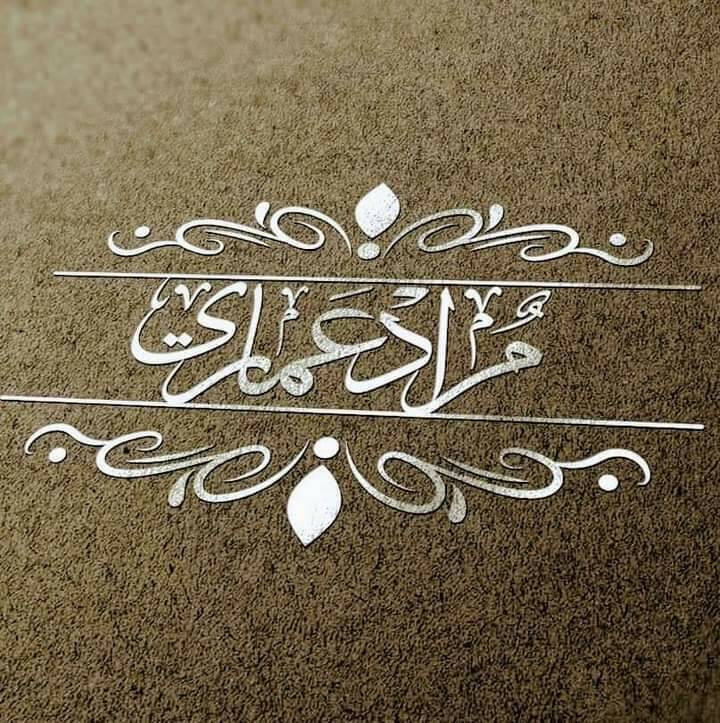 مُراد عَماري